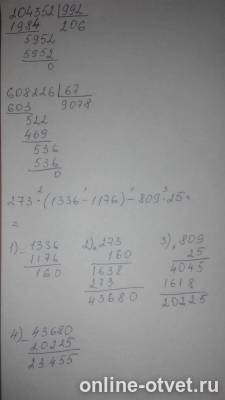 204352 | 992
1984 206
5952
5952
0
608226 | 67
603 9078
522
469
536
536
0
273 · (1336 - 1176) - 809 · 25 =
2 1 4 3
=
1) - 1336 2) × 273 3) × 809
1176 160 25
160 1638 4045
273 1618
43680 20225
4) - 43680
20225
23455
online-otvet.ru